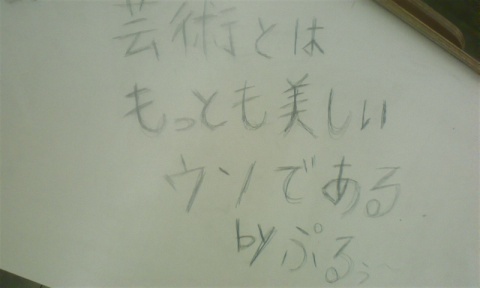 芸術とは
もっとも美しい
ウソである
by ぷるぅ